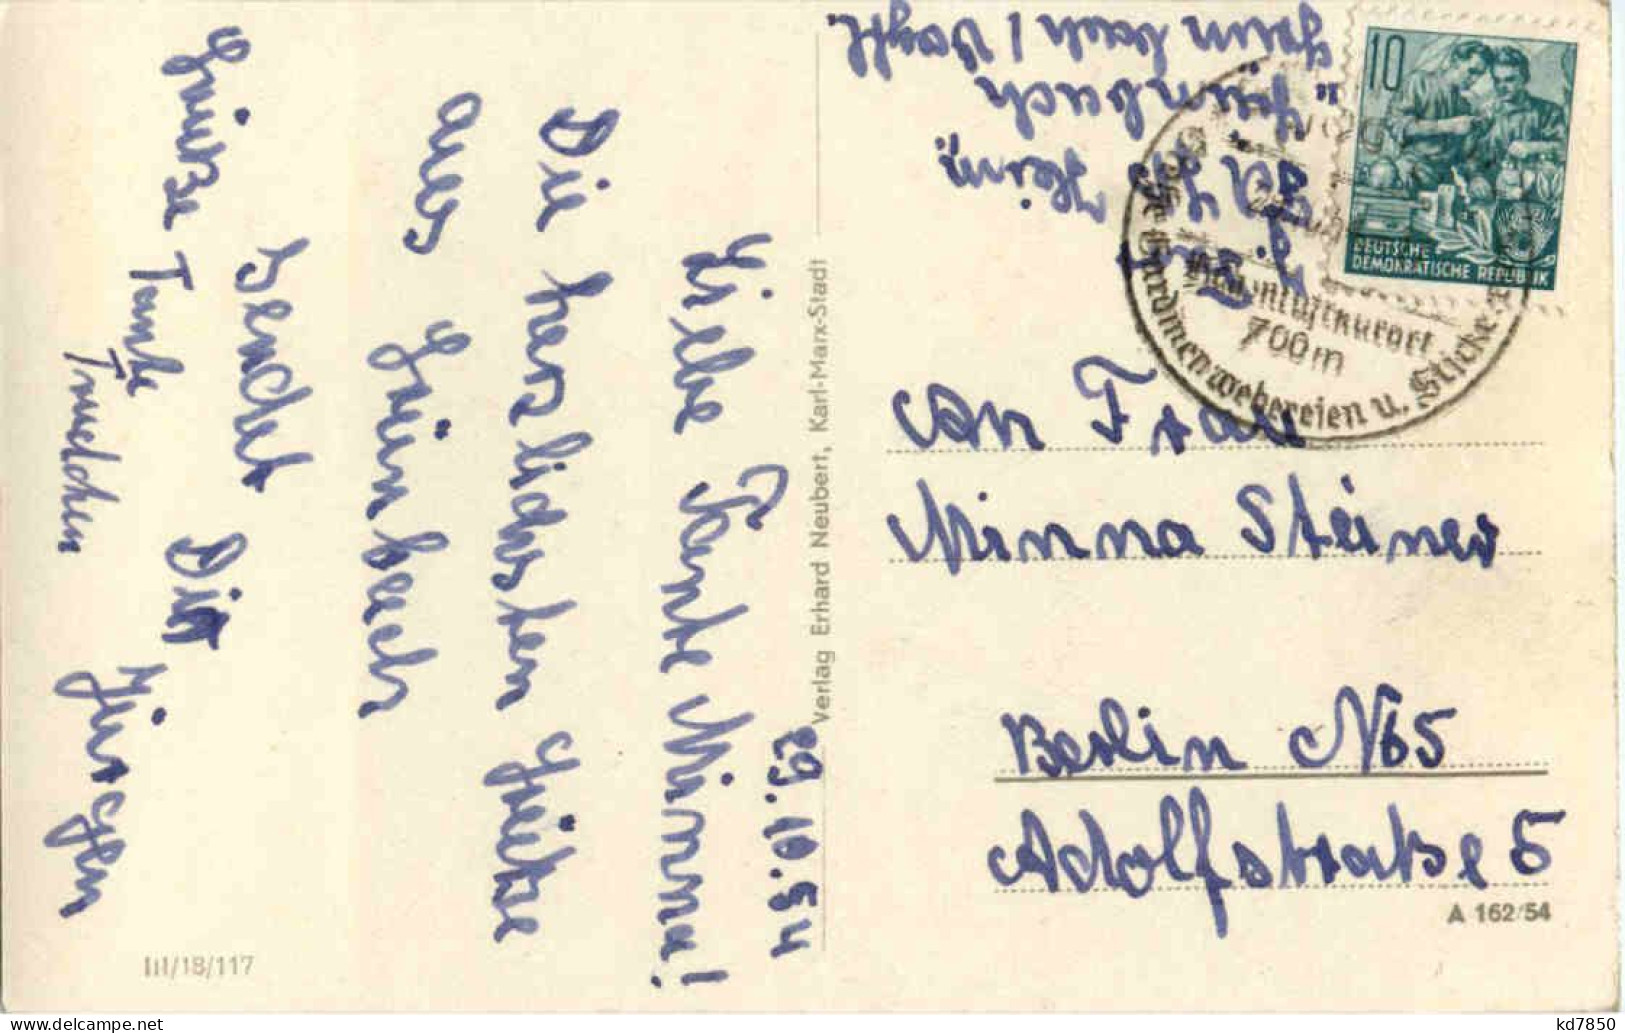 29.10.54
Liebe Tante Minna!
Die herzlichsten Grüße
aus Grünbach
sendet Dir
Jürgen
Grüße Tante
Truedchen
Verlag Erhard Neubert, Karl-Marx-Stadt
III/18/117
Heim
Grünbach
Grünbach / Vogtl.
10
DEUTSCHE
DEMOKRATISCHE REPUBLIK
Höhenluftkurort
700m
Gardinenwebereien u. Sticke
An Frau
Minna Steiner
Berlin N65
Adolfstraße 5
A 162/54
kd7850